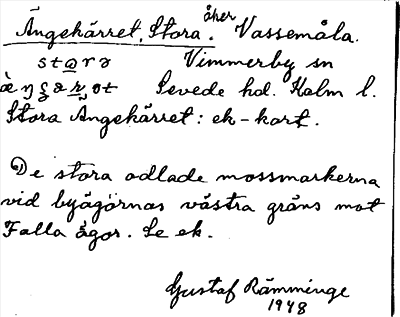 Ängekärret, Stora. åker Vassemåla.
Vimmerby sn
Sevede hd. Kalm l.
Stora Ängekärret: ek-kart.
De stora odlade mossmarkerna
vid byägornas västra gräns mot
Falla ägor. Se ek.
Gustaf Rämminge
1948